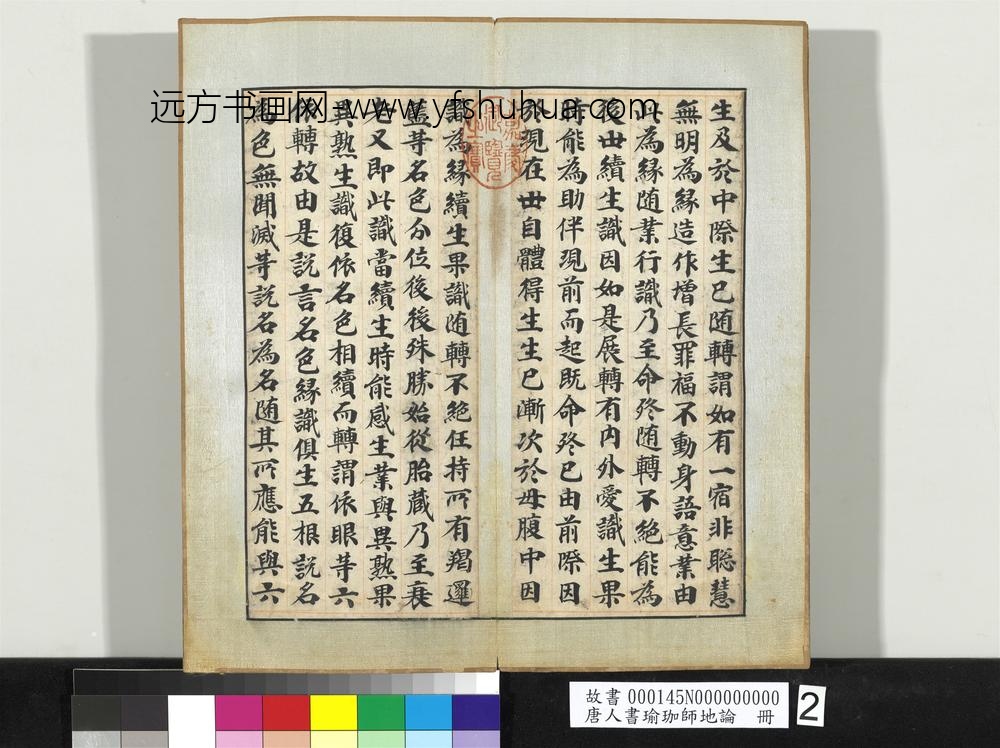 远方书画网-www.yfshuhua.com
生及於中際生已随轉謂如有一宿非聡慧
無明為縁造作增長罪福不動身語意業由
此為縁随業行識乃至命終随轉不絶能為
後世續生識因如是展轉有内外愛識生果
時能為助伴現前而起既命終已由前際因
於現在世自體得生生已漸次於母腹中因
嘉慶
御覽
之寶
識為縁續生果識随轉不絶任持所有羯邏
藍等名色分位後後殊勝始從胎藏乃至衰
老又即此識當續生時能感生業與異熟果
異熟生識復依名色相續而轉謂依眼等六
依轉故由是說言名色縁識俱生五根說名
為色無間滅等說名為名随其所應能與六
故書 000145N000000000
唐人書瑜珈師地論 冊
2